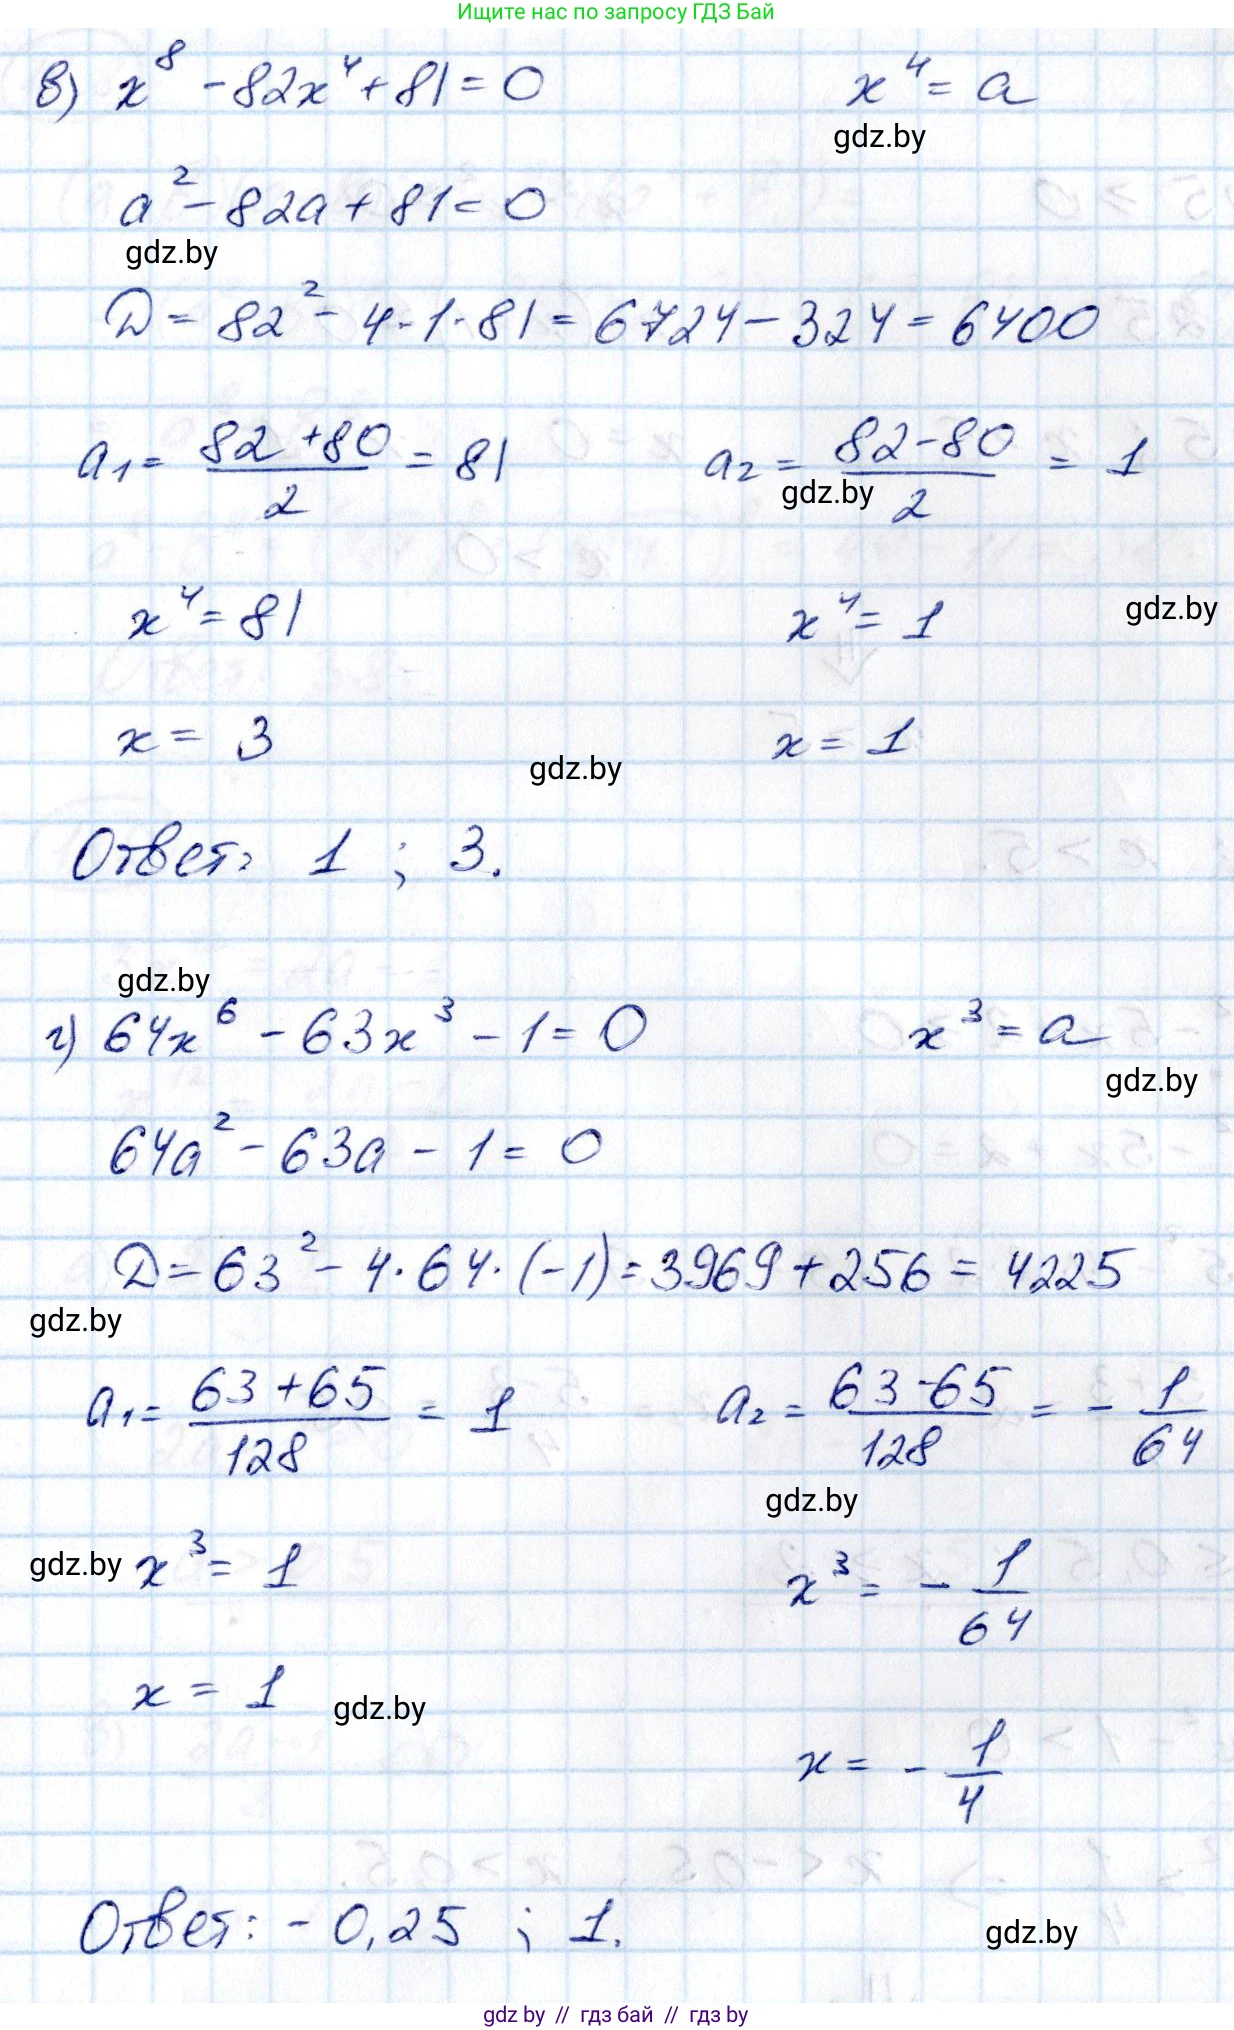 Ищите нас по запросу ГДЗ Бай
в) x⁸ - 82x⁴ + 81 = 0   x⁴ = a
gdz.by
a² - 82a + 81 = 0
gdz.by
D = 82² - 4·1·81 = 6724 - 324 = 6400
a₁ = (82 + 80)/2 = 81   a₂ = (82 - 80)/2 = 1
gdz.by
x⁴ = 81   x⁴ = 1   gdz.by
x = 3   x = 1
gdz.by
Ответ: 1 ; 3.
gdz.by
г) 64x⁶ - 63x³ - 1 = 0   x³ = a
gdz.by
64a² - 63a - 1 = 0
D = 63² - 4·64·(-1) = 3969 + 256 = 4225
gdz.by
a₁ = (63 + 65)/128 = 1   a₂ = (63 - 65)/128 = - 1/64
gdz.by
gdz.by   x³ = 1   x³ = - 1/64
x = 1   gdz.by
x = - 1/4
Ответ: - 0,25 ; 1.
gdz.by
gdz by // гдз бай // гдз by